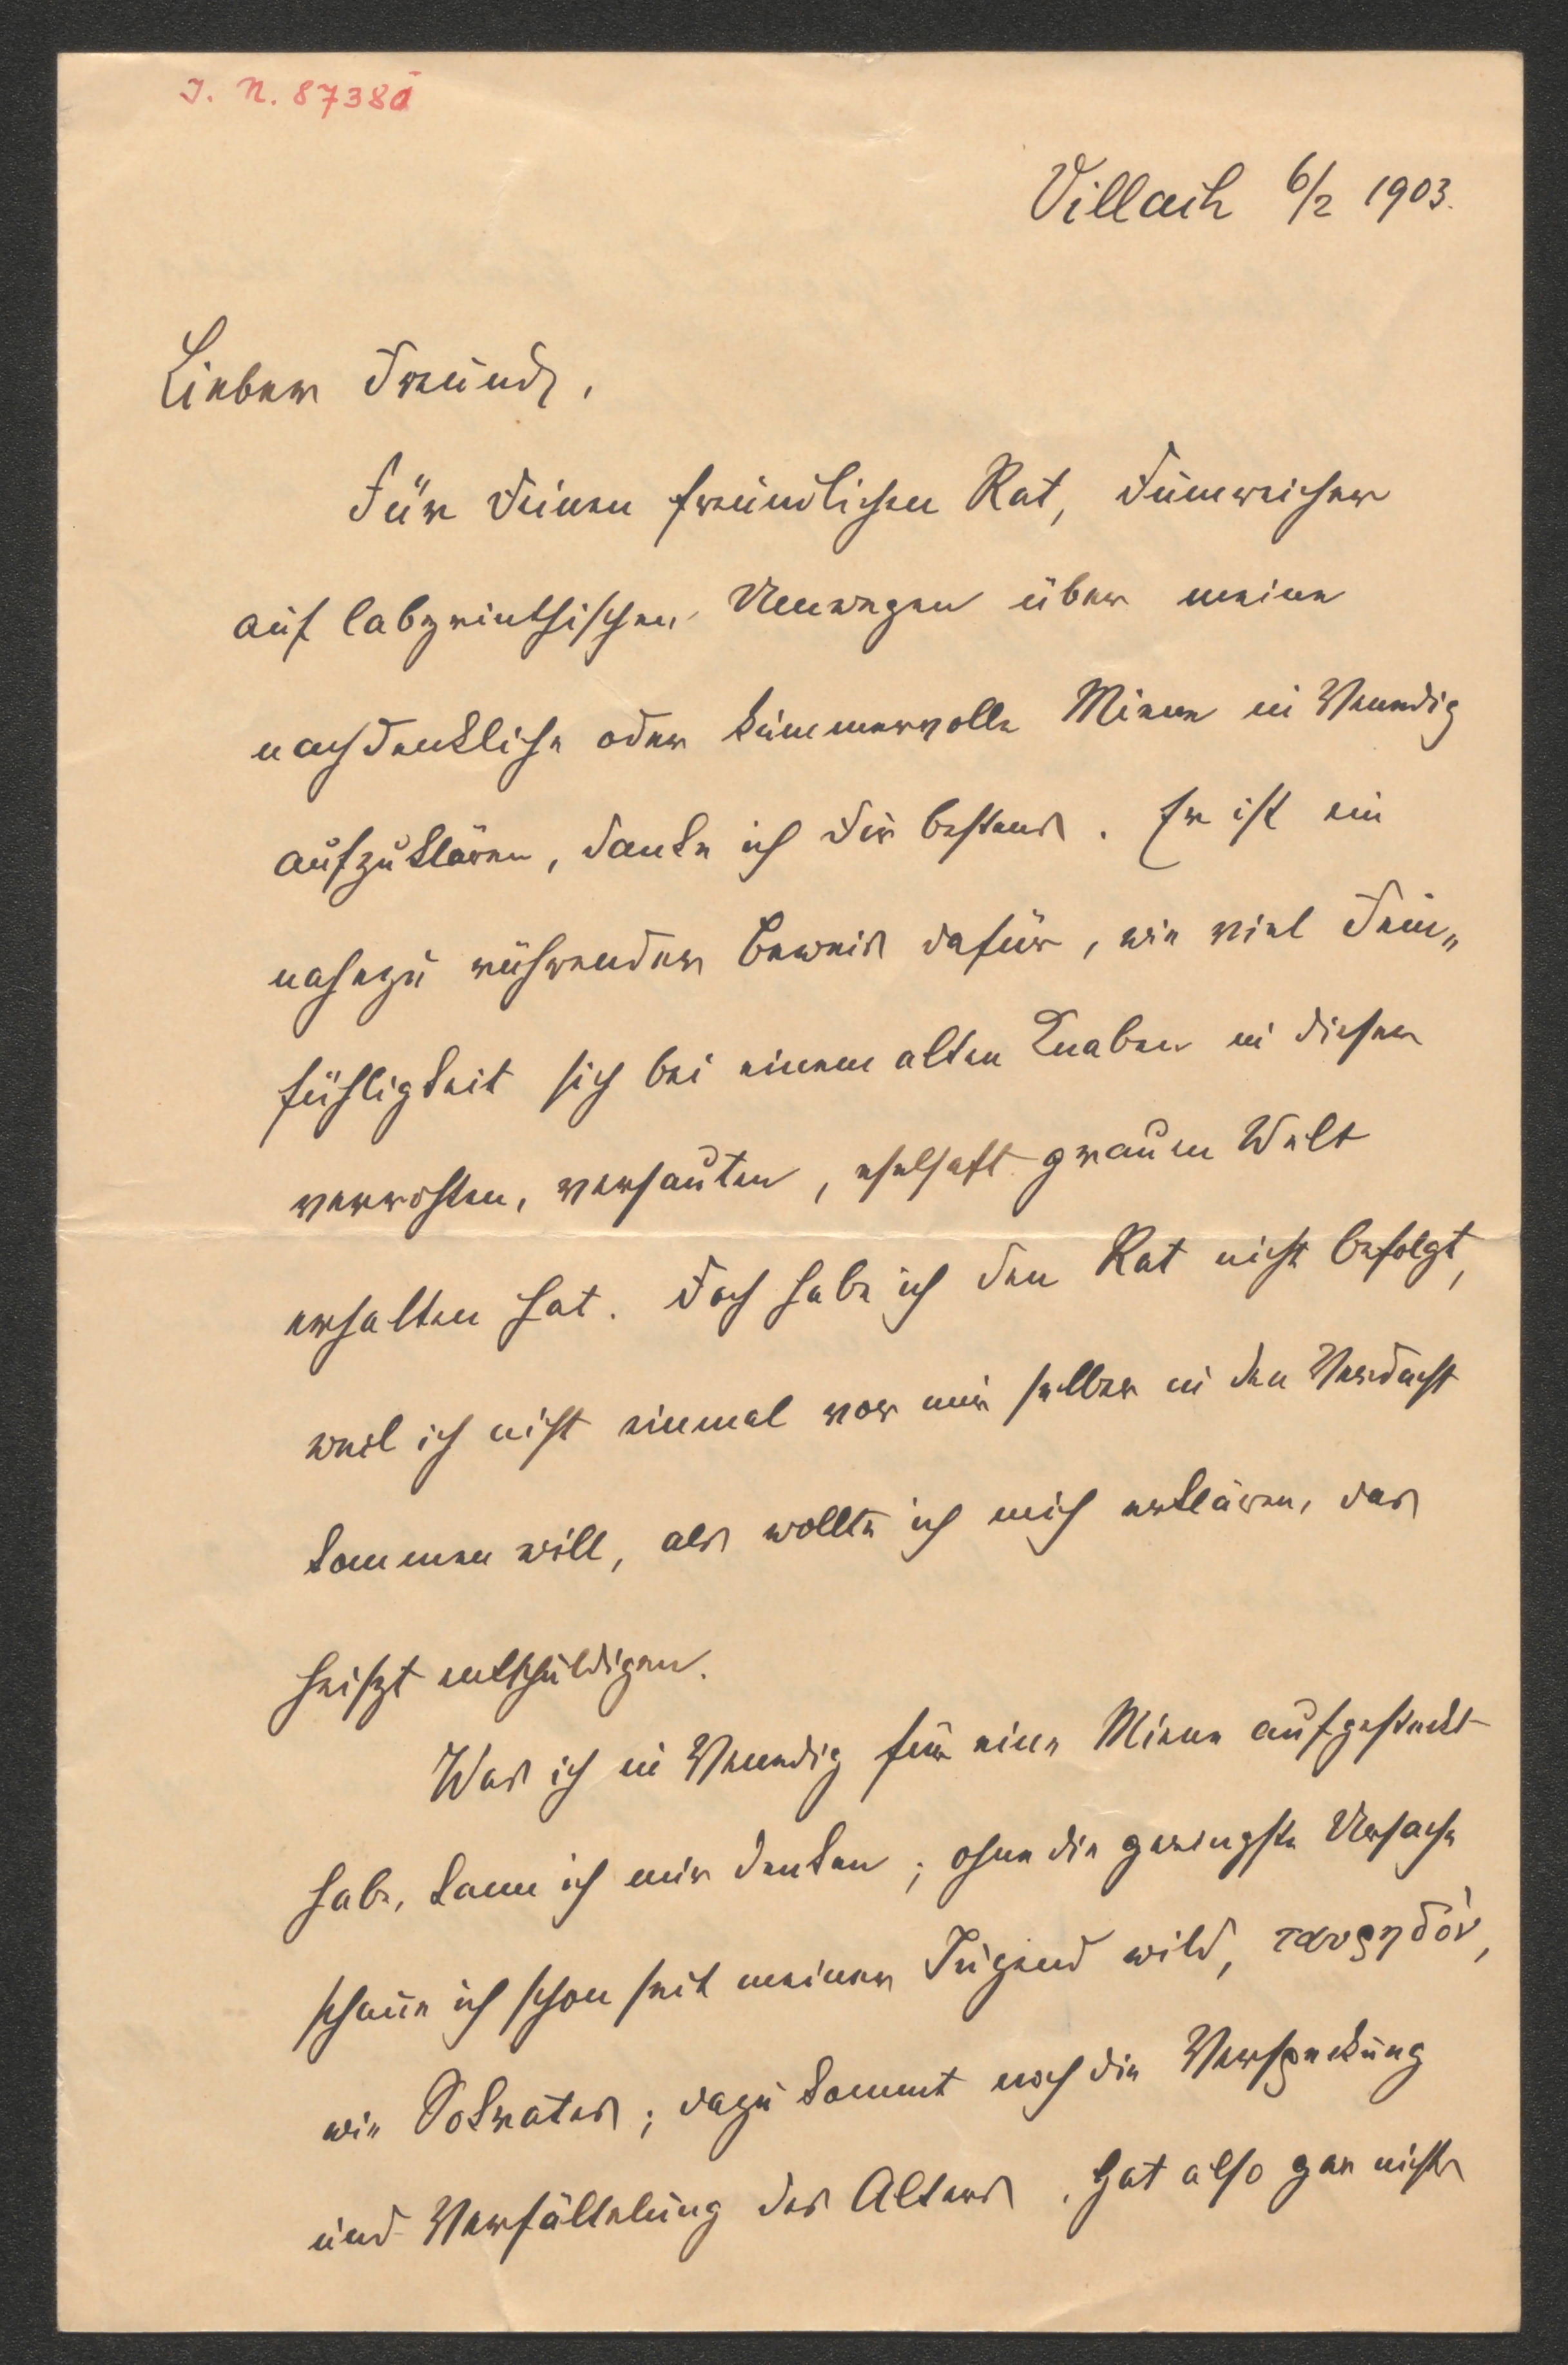 I. N. 87380
Villach 6/2 1903.
Lieber Freund,
Für Deinen freundlichen Rat,
auf labyrinthischen Umwegen über meine
nachdenkliche oder kummervolle Miene in Venedig
aufzuklären, danke ich Dir bestens. Er ist ein
nahezu rührender Beweis dafür, wie viel Fein„
fühligkeit sich bei einem alten Knaben in dieser
verrohten, versauten, eselhaft grauen Welt
erhalten hat. Doch habe ich den Rat nicht befolgt,
weil ich nicht einmal vor mir selber in den Verdacht
kommen will, als wollte ich mich erklären, das
heiszt entschuldigen.
Was ich in Venedig für eine Miene aufgesteckt
habe, kann ich mir denken; ohne die geringste Ursache
schaue ich schon seit meiner Jugend wild, ταυρηδόν,
wie Sokrates; dazu kommt noch die Verspeckung
und Verfältelung des Alters. Hat also gar nichts